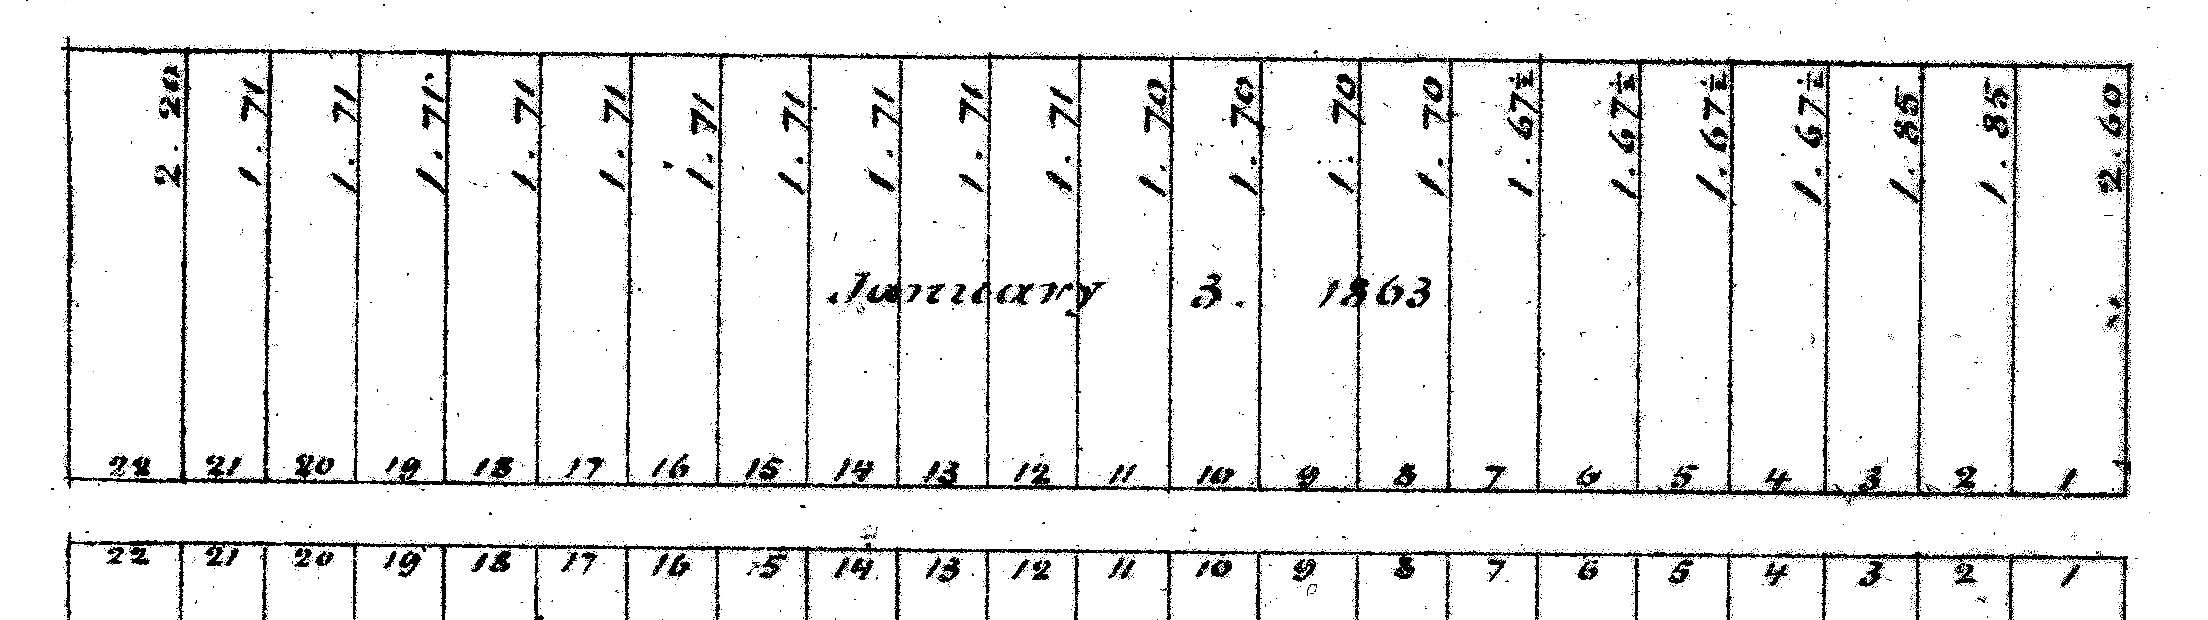 2.20 1.71 1.71 1.71 1.71 1.71 1.71 1.71 1.71 1.71 1.71 1.70 1.70 1.70 1.70 1.67½ 1.67½ 1.67½ 1.67½ 1.85 1.85 2.60
January 3. 1863
22 21 20 19 18 17 16 15 14 13 12 11 10 9 8 7 6 5 4 3 2 1
22 21 20 19 18 17 16 15 14 13 12 11 10 9 8 7 6 5 4 3 2 1